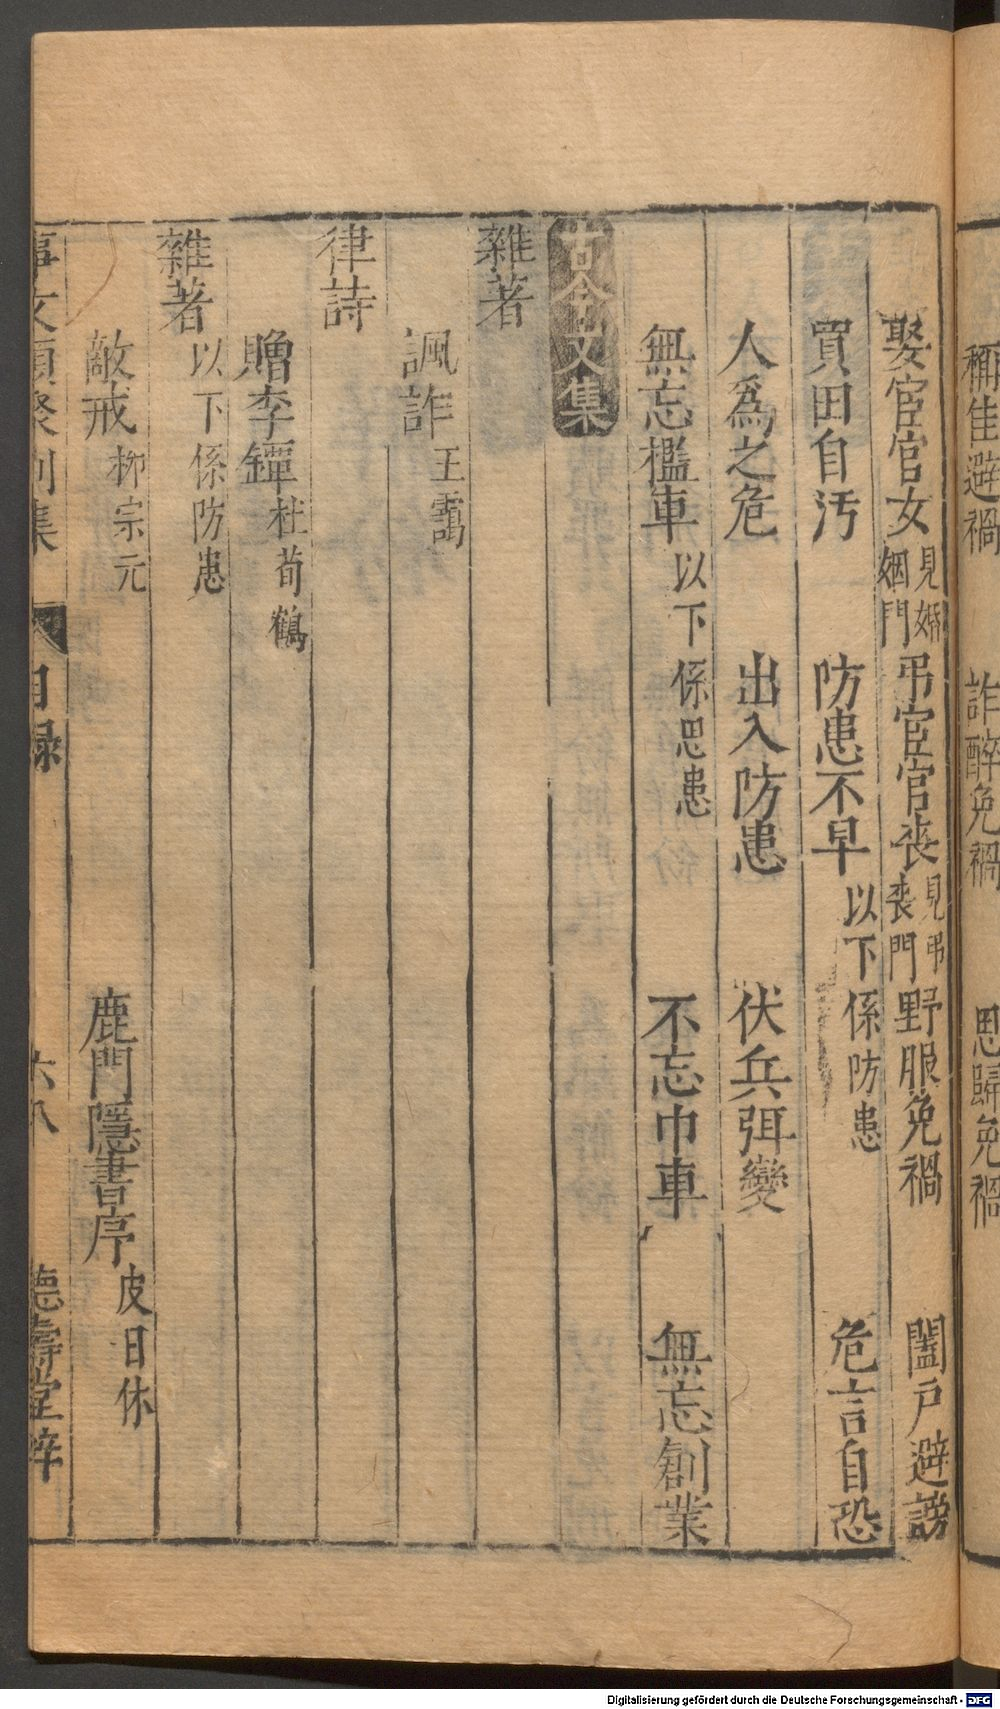 稱佳避禍 詐醉免禍 思歸免禍
娶宦官女見婚姻門 弔宦官喪見弔喪門 野服免禍 闔戶避謗
買田自汚 防患不早以下係防患 危言自恐
人爲之危 出入防患 伏兵弭變
無忘檻車以下係思患 不忘巾車 無忘創業
古今文集
雜著
諷詐王靄
律詩
贈李鐔杜荀鶴
雜著以下係防患
敵戒柳宗元 鹿門隱書序皮日休
事文類聚別集 目録 六八 德壽堂梓
Digitalisierung gefördert durch die Deutsche Forschungsgemeinschaft - DFG